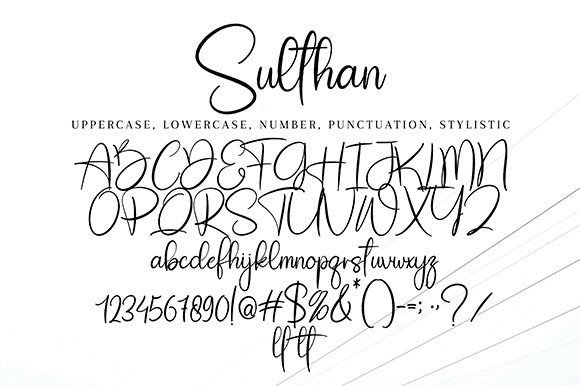 Sulthan
UPPERCASE, LOWERCASE, NUMBER, PUNCTUATION, STYLISTIC
ABCDEFGHIJKLMN
OPQRSTUVWXYZ
abcdefhijklmnopqrstuvwxyz
1234567890!@#$%&*()-=;.,?/